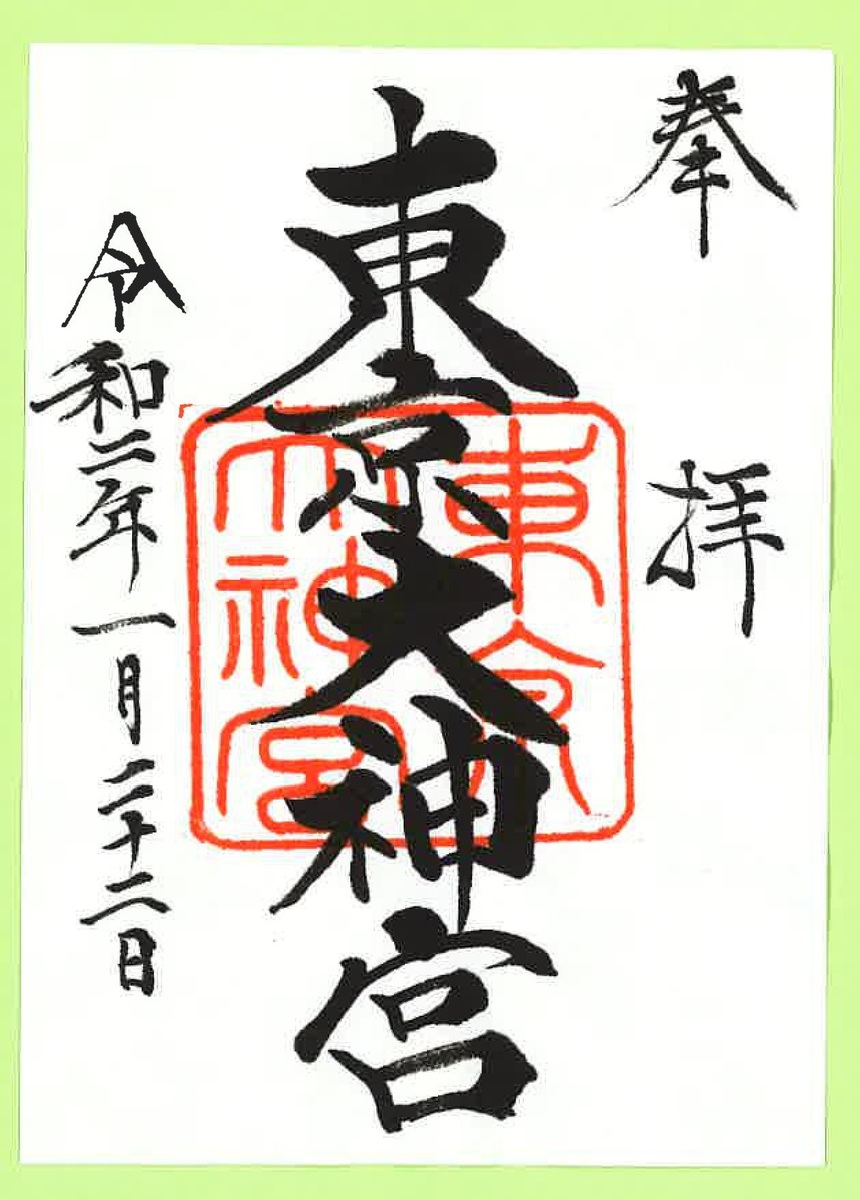 奉拝
東京大神宮
東京
大神宮
令和二年一月二十二日